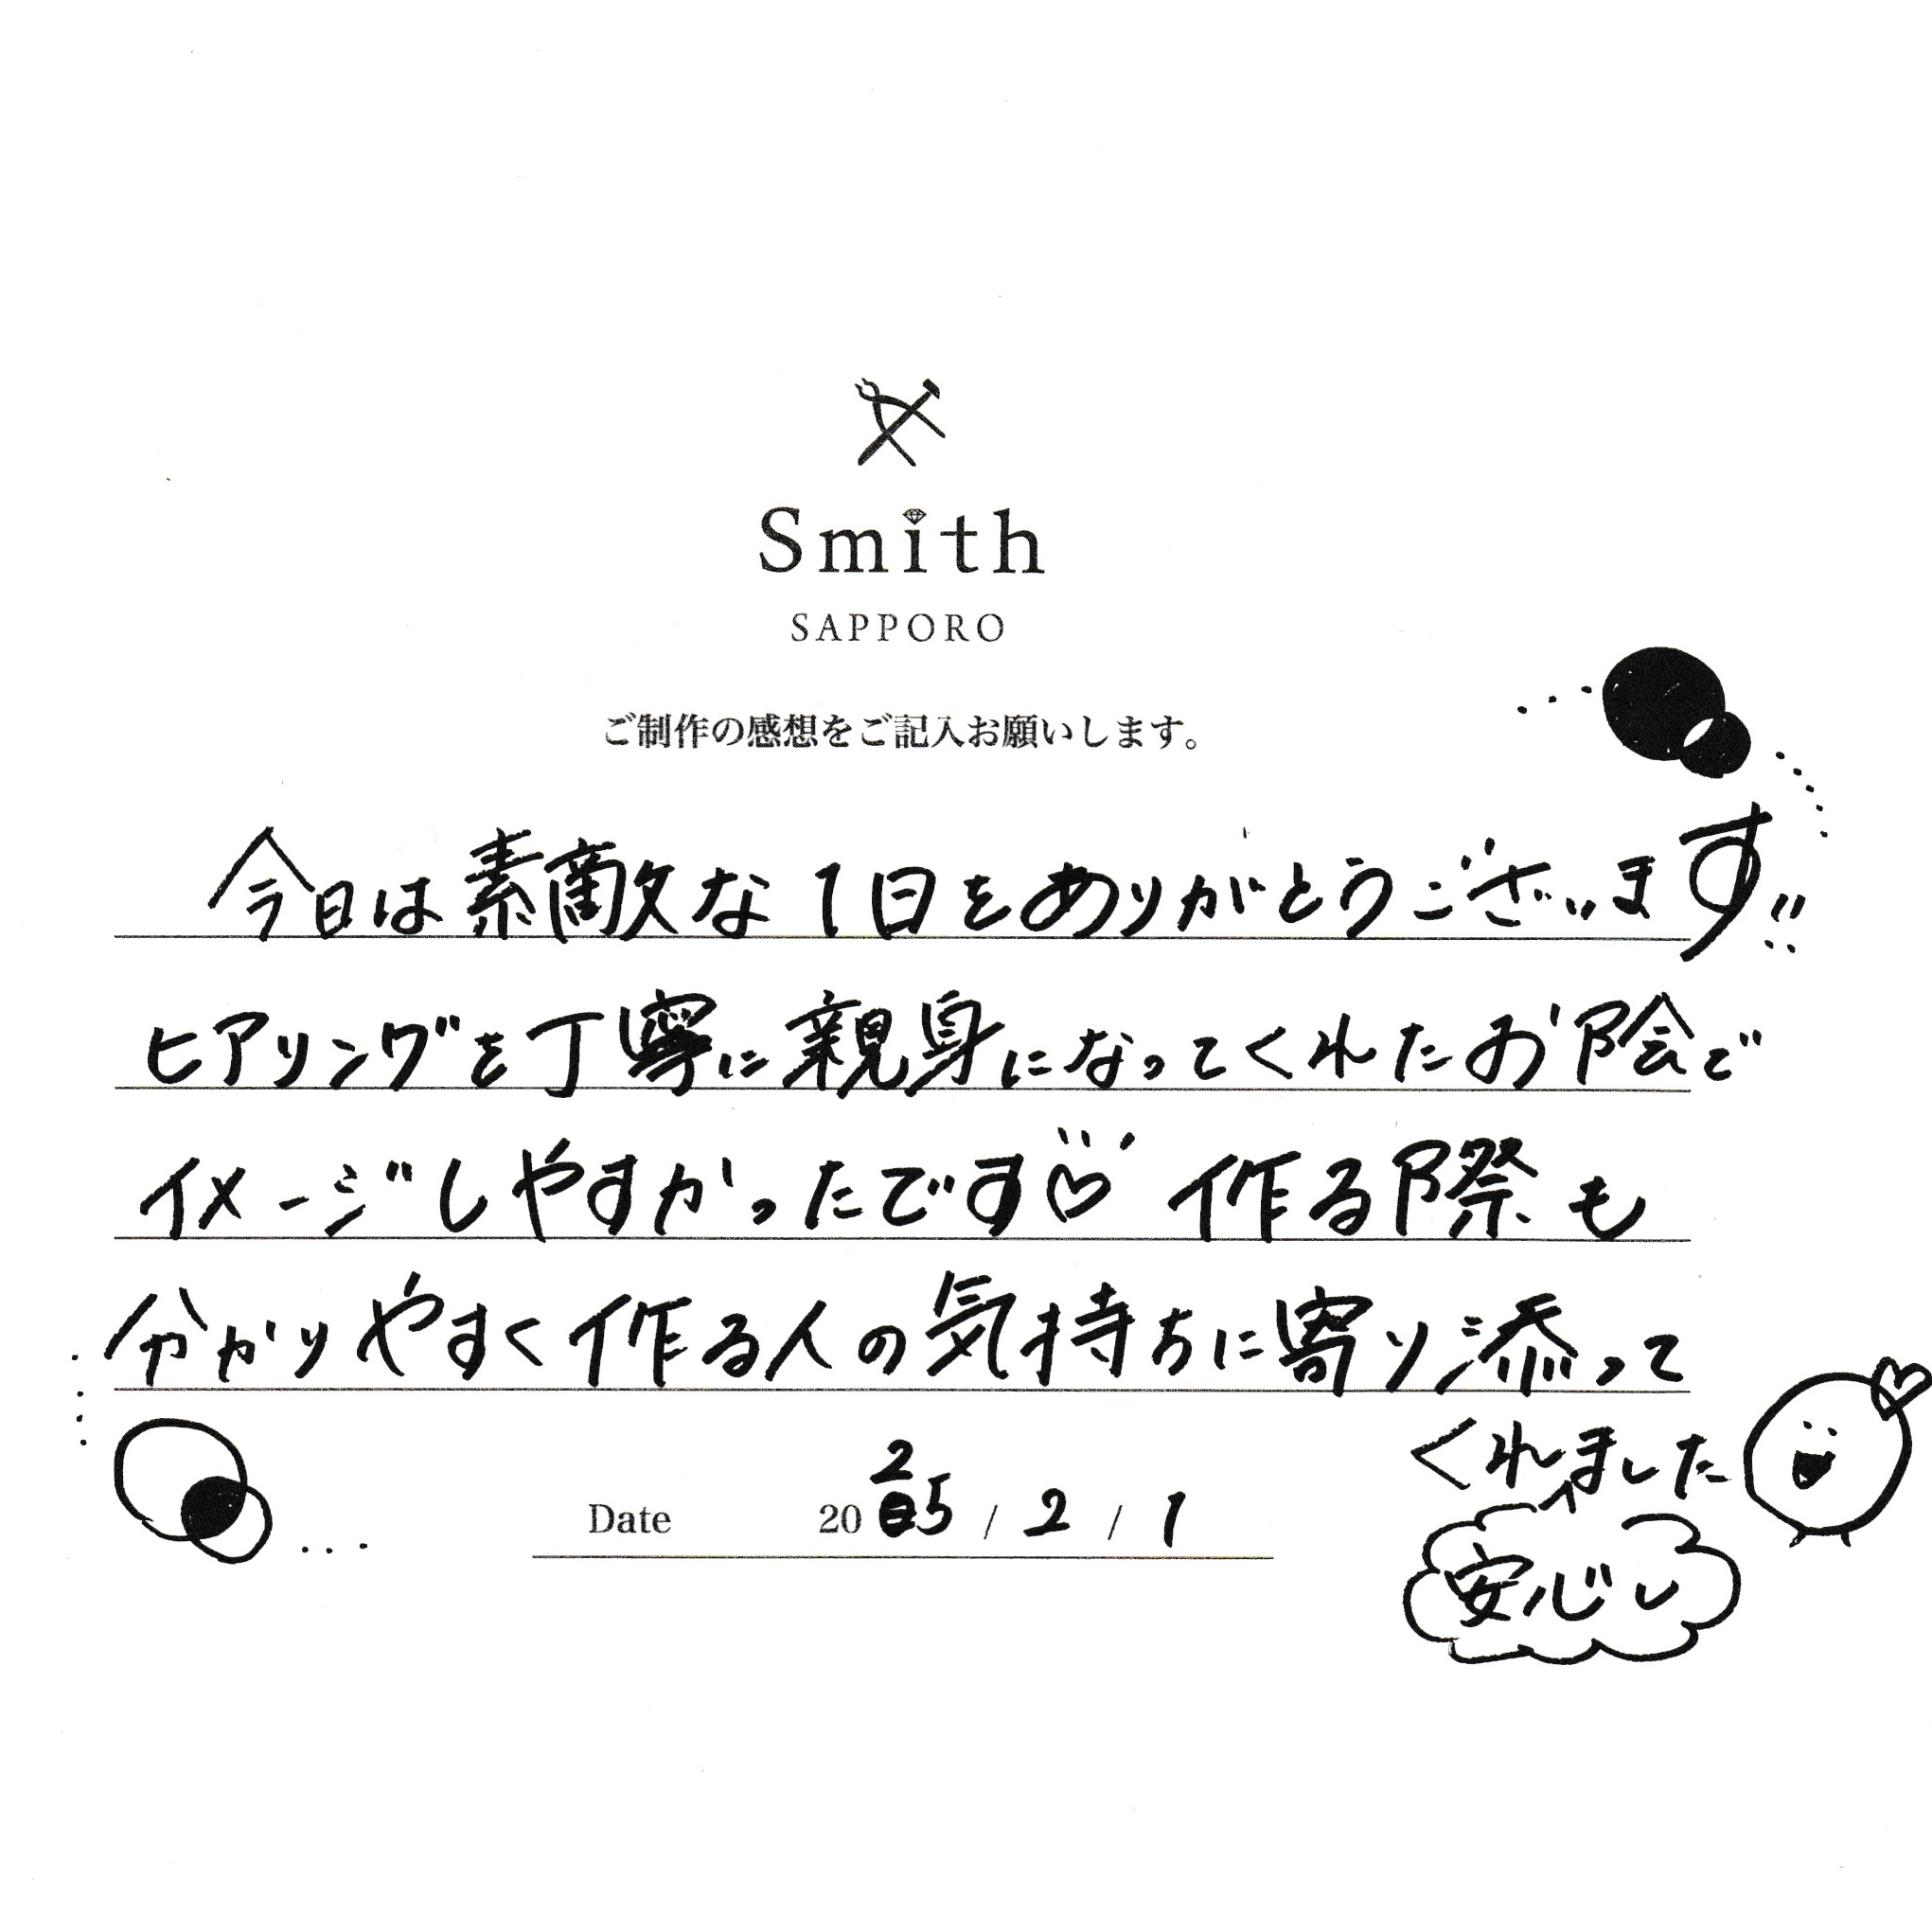 Smith
SAPPORO
ご制作の感想をご記入お願いします。
今日は素敵な1日をありがとうございます!!
ヒアリングを丁寧に親身になってくれたお陰で
イメージしやすかったです♡ 作る際も
分かりやすく作る人の気持ちに寄り添って
くれました
安心し
Date 2025 / 2 / 1